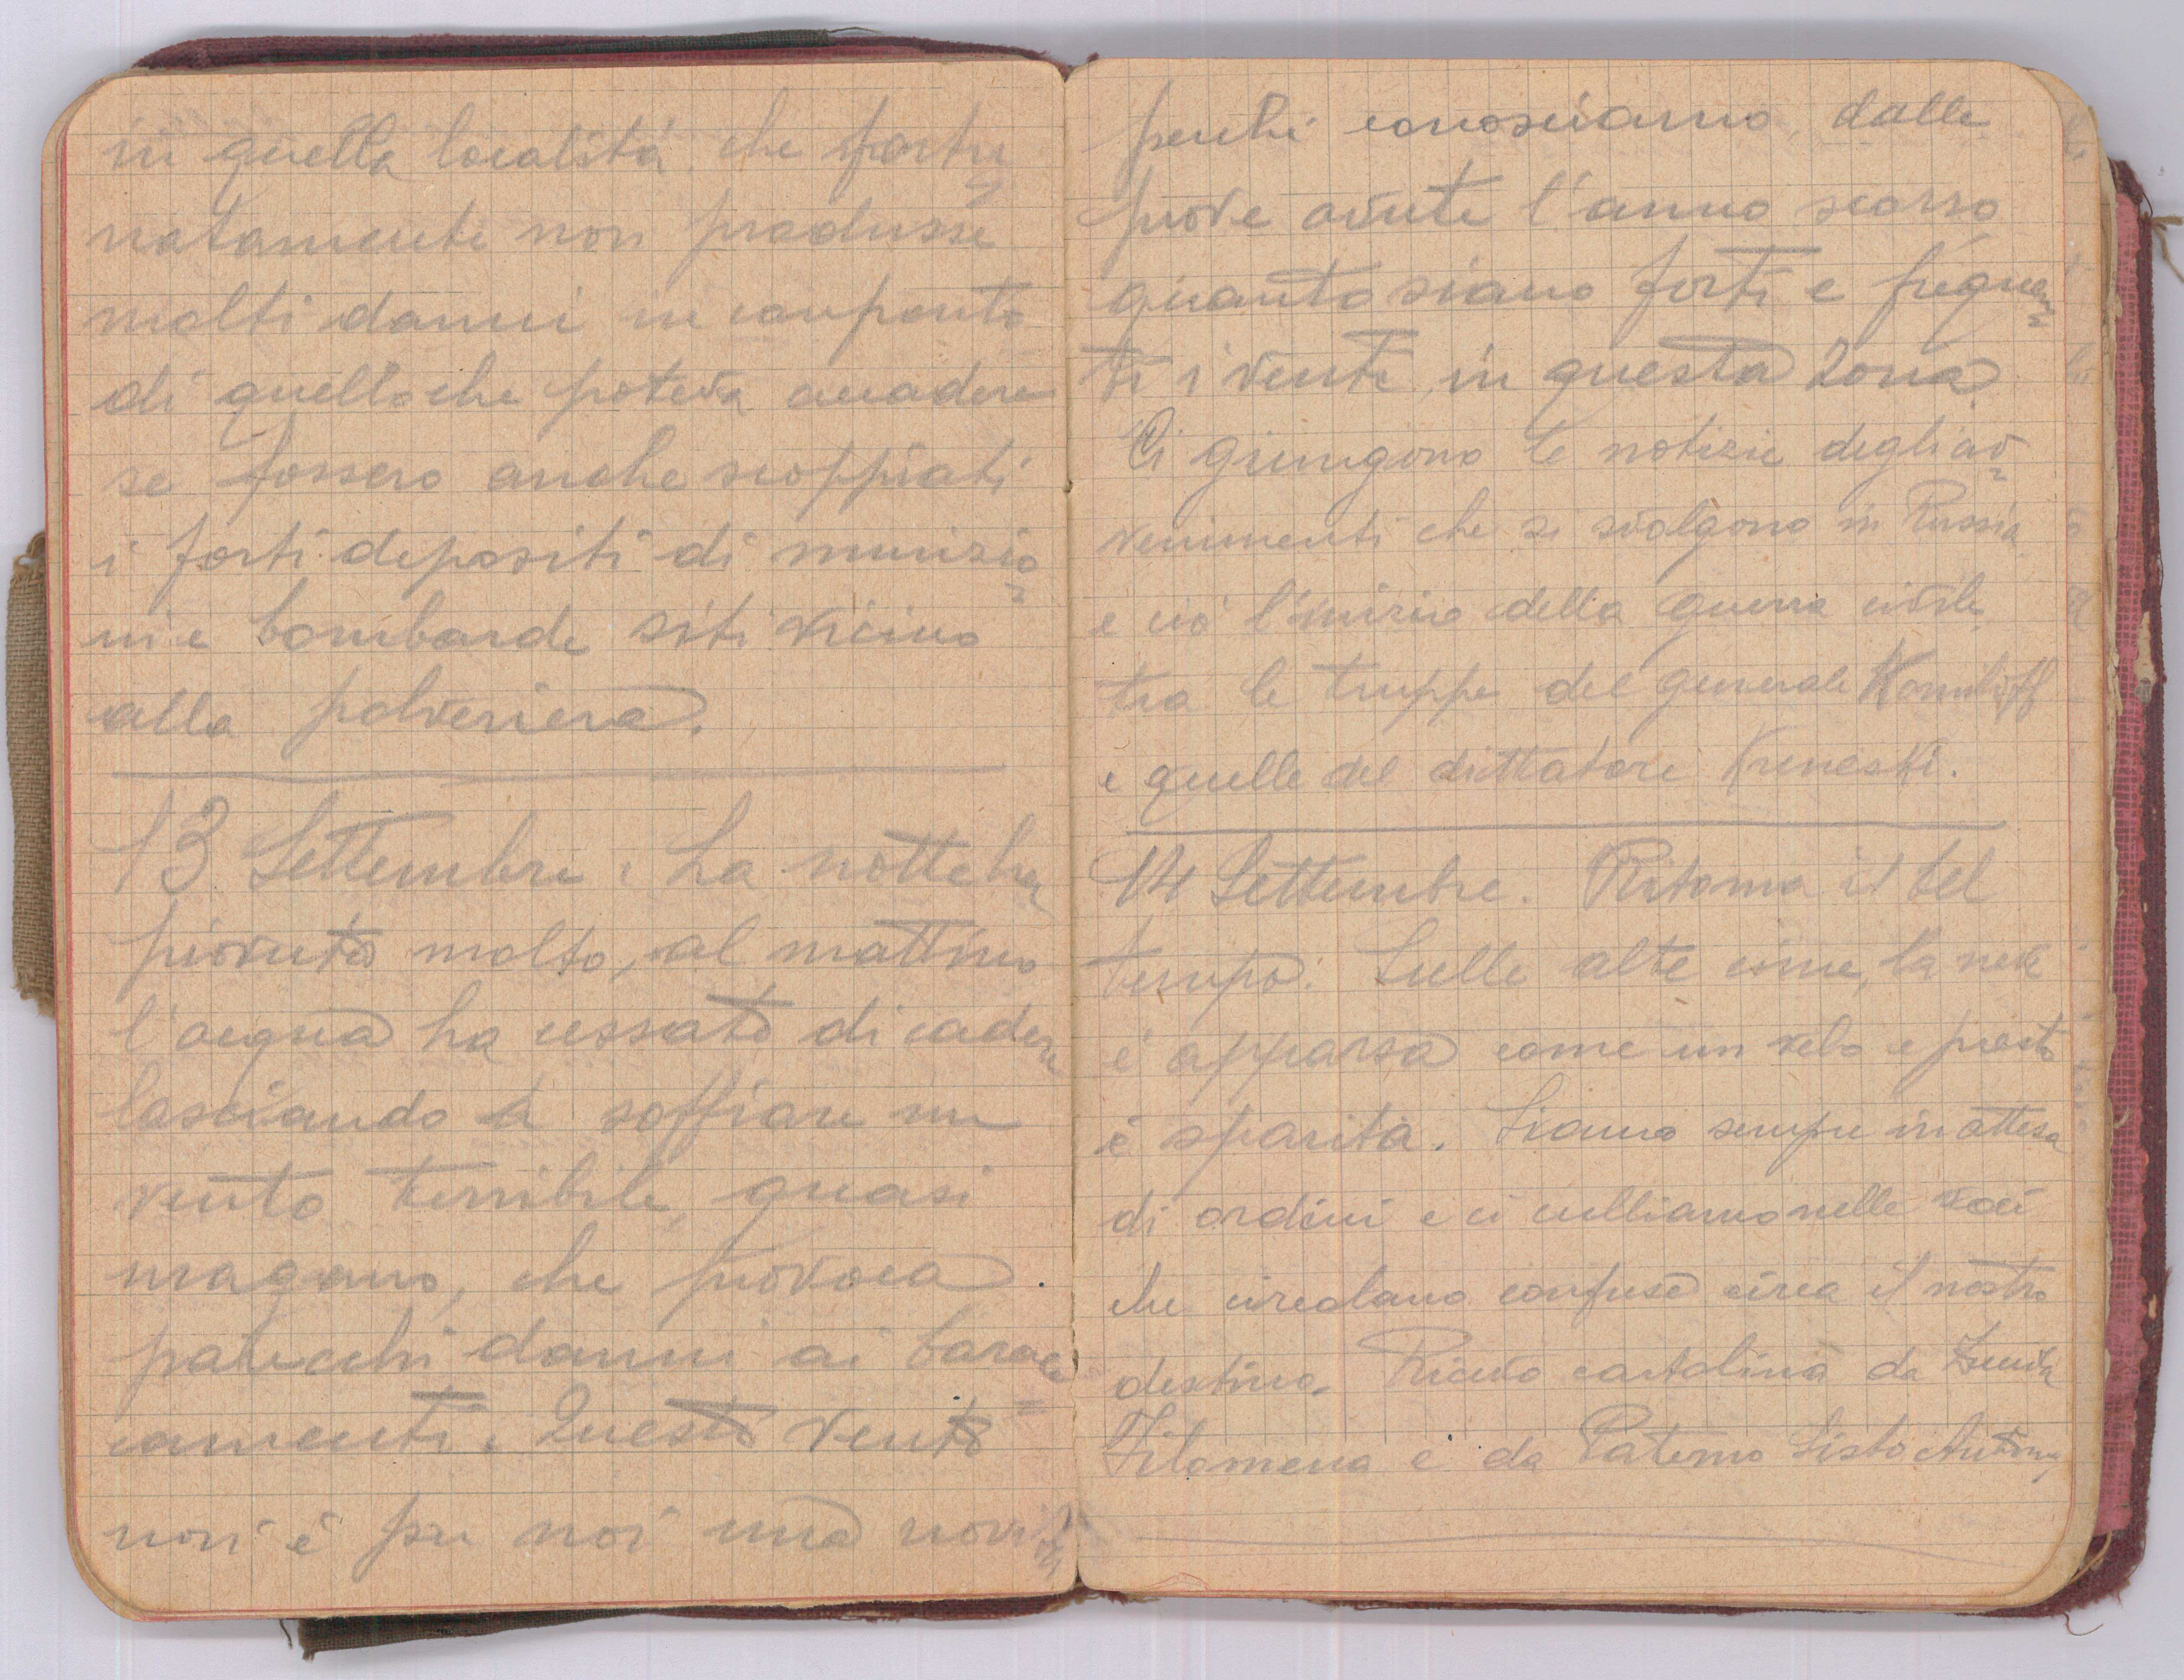 in quella località che fortu=
natamente non produsse
molti danni in confronto
di quello che poteva accadere
se fossero anche scoppiati
i forti depositi di munizio=
ni e bombarde siti vicino
alla polveriera.
13 Settembre. La notte ha
piovuto molto, al mattino
l'acqua ha cessato di cadere
lasciando a soffiare un
vento terribile, quasi
uragano, che provoca
parecchi danni ai barac=
camenti. Questo vento
non è per noi una novità
perchè conosciamo, dalle
prove avute l'anno scorso
quanto siano forti e frequen=
ti i venti in questa zona
Ci giungono le notizie degli av=
venimenti che si svolgono in Russia
e ciò l'inizio della guerra civile
tra le truppe del generale Korniloff
e quelle del dittatore Kreneski.
14 Settembre. Ritorna il bel
tempo. Sulle alte cime, la neve
è apparsa come un velo e presto
è sparita. Siamo sempre in attesa
di ordini e ci culliamo nelle voci
che circolano confuse circa il nostro
destino. Ricevo cartolina da
Filomena e da Paterno Sisto